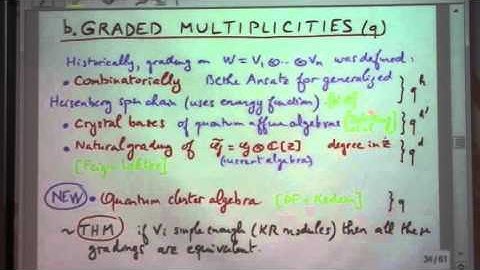 b. GRADED MULTIPLICITIES (q)
Historically, grading on W = V₁⊗...⊗Vₙ was defined:
• Combinatorially Bethe Ansatz for generalized
Heisenberg spin chain (uses energy function) } q^h
• Crystal bases of quantum affine algebras } q^h'
• Natural grading of 𝔤̃ = 𝔤 ⊗ ℂ[z] degree in z } q^d
[Feigin Loktev] (current algebra)
NEW • Quantum cluster algebra [DF + Kedem] } q
~ THM if Vᵢ simple enough (KR modules) then all these
gradings are equivalent.
34/61